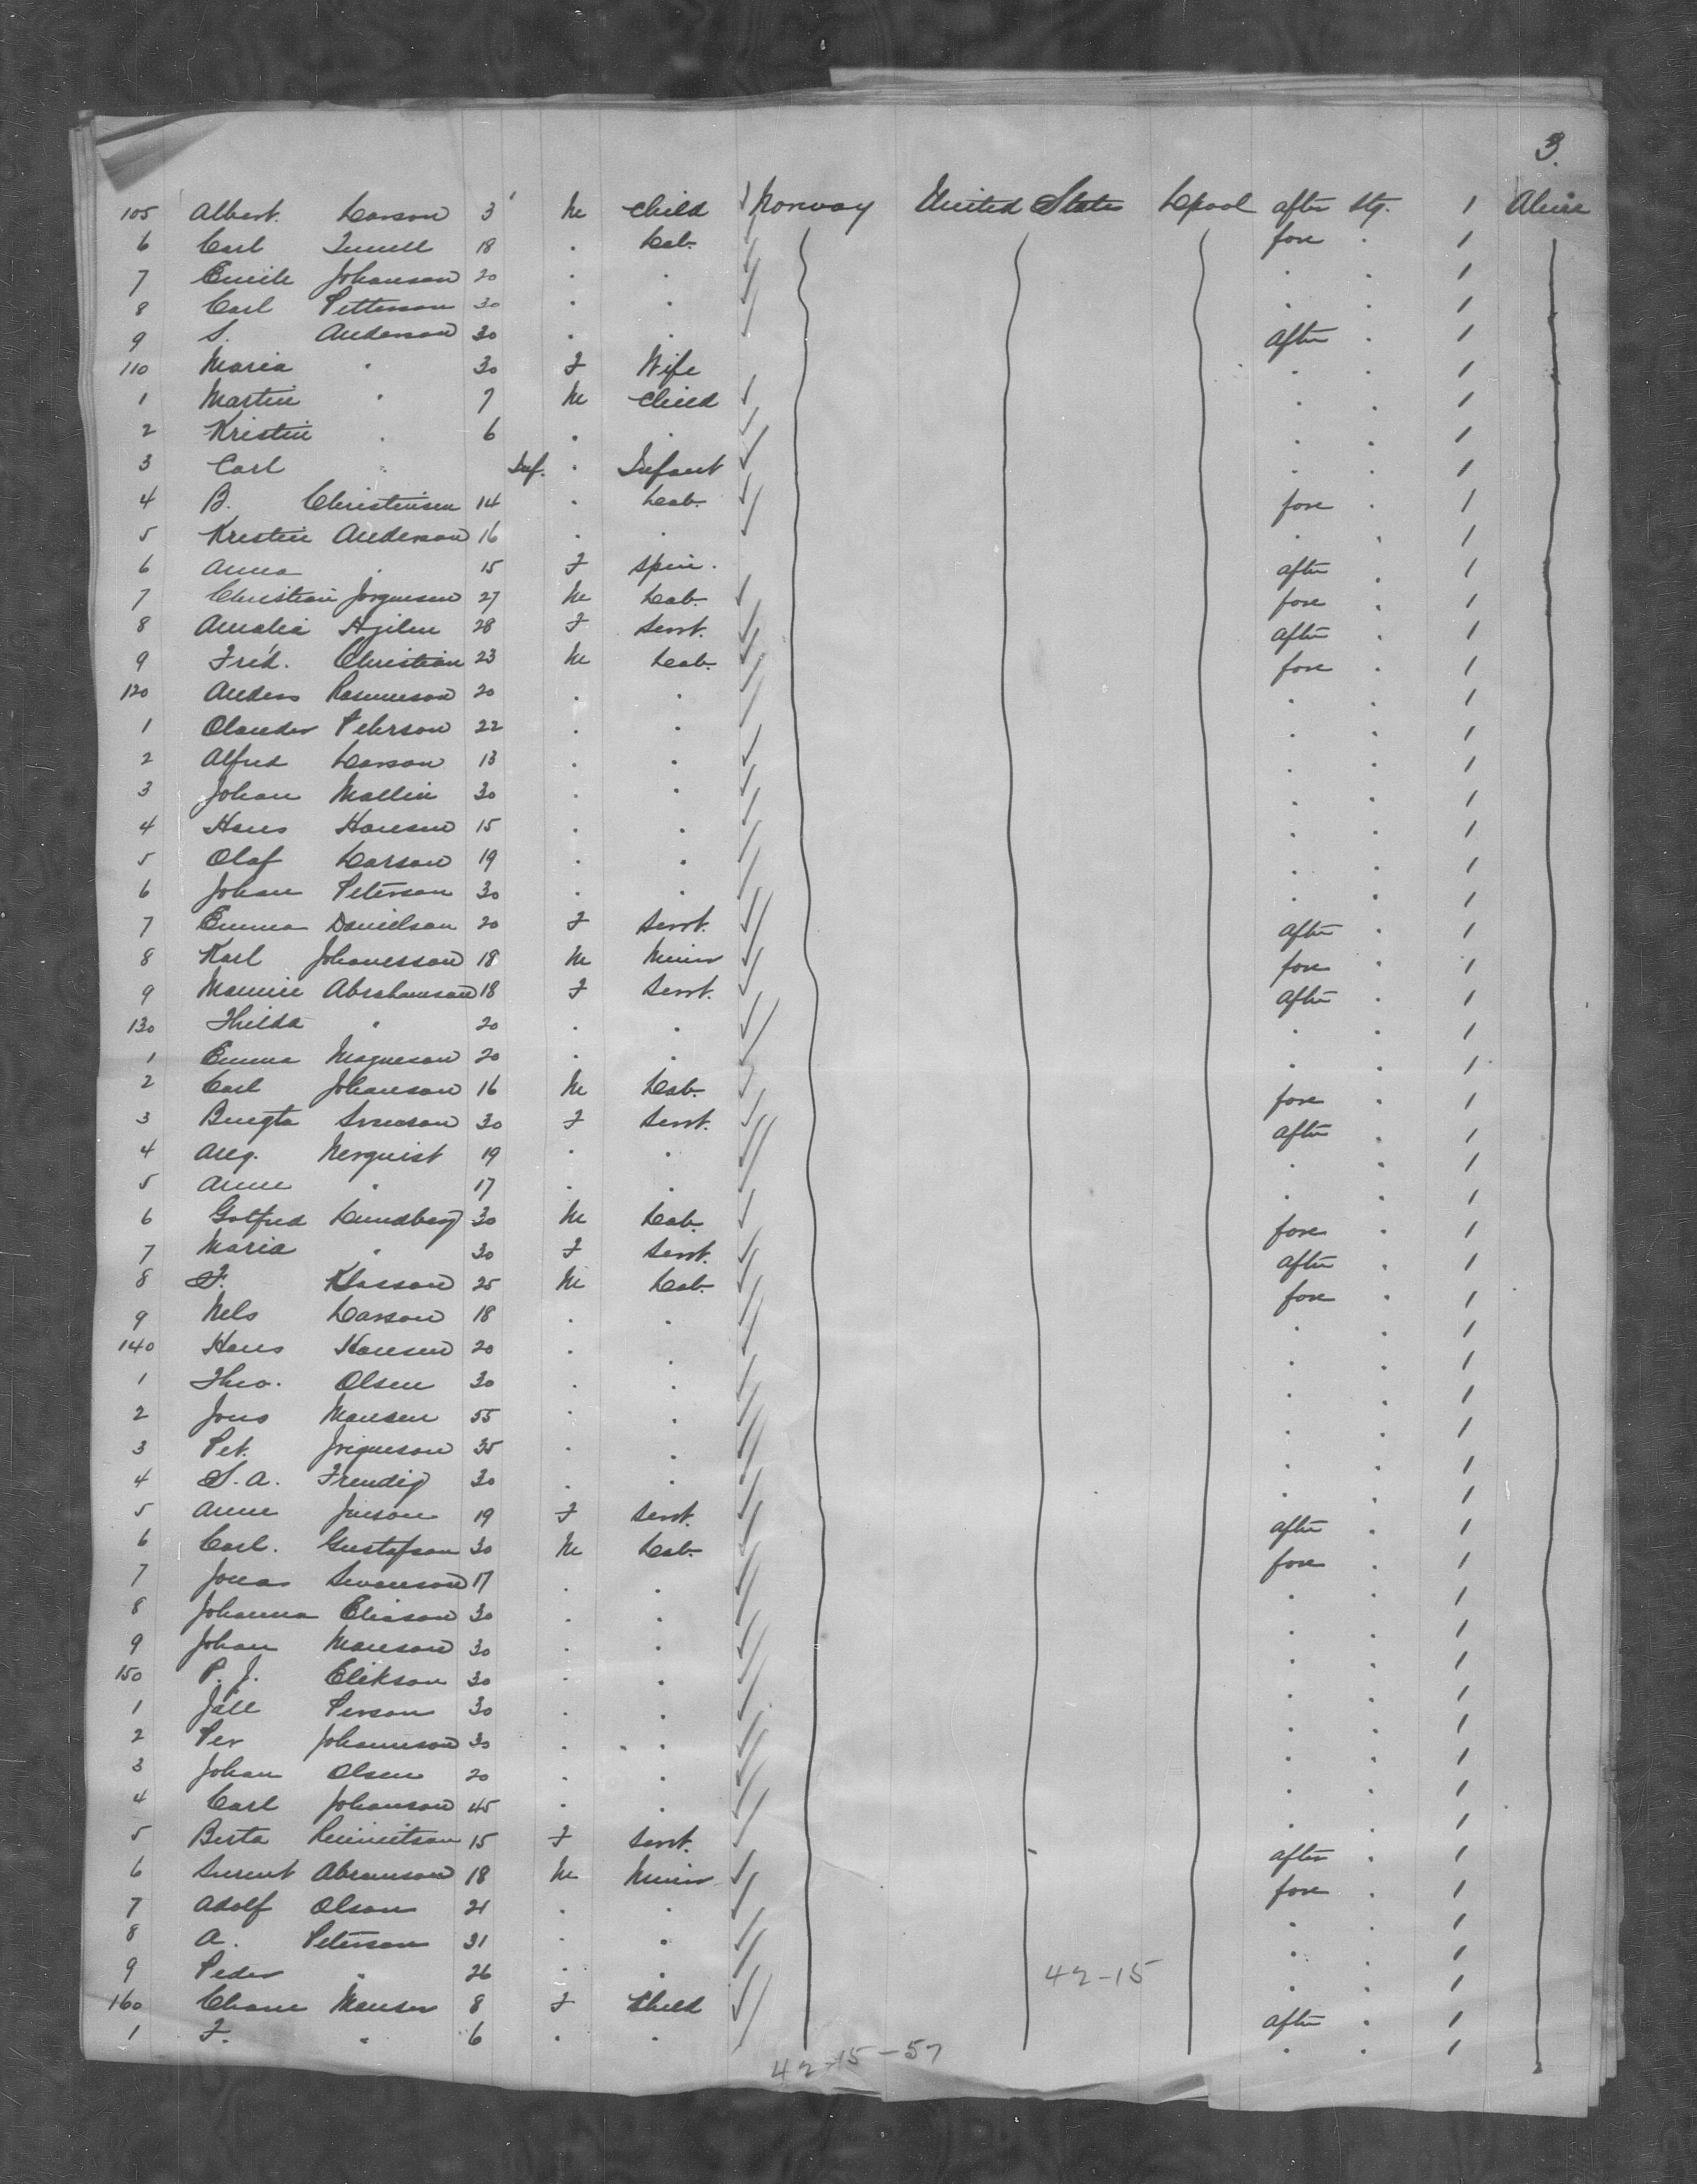 3.
105 Albert. Larson 3 M Child Norway United States Lpool after stg. 1 Alive
6 Carl 18 . Lab. fore . 1
7 Emile Johanson 20 . . . . 1
8 Carl Petterson 30 . . . . 1
9 S. Anderson 30 . . after . 1
110 Maria " 30 F Wife . . 1
1 Martin " 7 M Child . . 1
2 Kristin . 6 . . . . 1
3 Carl " Inf. . Infant . . 1
4 B. Christensen 14 . Lab. fore . 1
5 Kristin Anderson 16 . . . . 1
6 Anna . 15 F Spin. after . 1
7 Christian Jorgensen 27 M Lab. fore . 1
8 Amalia 28 F Servt. after . 1
9 Fred. Christian 23 M Lab. fore . 1
120 Anders Rasmuson 20 . . . . 1
1 Olander Peterson 22 . . . . 1
2 Alfred Larson 13 . . . . 1
3 Johan Mallin 30 . . . . 1
4 Hans Hansen 15 . . . . 1
5 Olaf Larson 19 . . . . 1
6 Johan Peterson 30 . . . . 1
7 Emma Danielson 20 F Servt. after . 1
8 Karl Johanesson 18 M Miner fore . 1
9 Minnie Abrahamson 18 F Servt. after . 1
130 Thilda " 20 . . . . 1
1 Emma Magneson 20 . . . . 1
2 Carl Johanson 16 M Lab. fore . 1
3 Bengta Svenson 30 F Servt. after . 1
4 Aug. Nerquist 19 . . . . 1
5 Anne " 17 . . . . 1
6 Gotfred Lundberg 30 M Lab. fore . 1
7 Maria " 30 F Servt. after . 1
8 F. Klasson 25 M Lab. fore . 1
9 Nels Larson 18 . . . . 1
140 Hans Hansen 20 . . . . 1
1 Theo. Olsen 30 . . . . 1
2 Jons Mansen 55 . . . . 1
3 Pet. 35 . . . . 1
4 S. A. Frendig 30 . . . . 1
5 Anne Jonson 19 F Servt. after . 1
6 Carl. Gustafson 30 M Lab. fore . 1
7 Jonas Swanson 17 . . . . 1
8 Johanna Eliason 30 . . . . 1
9 Johan Manson 30 . . . . 1
150 P. J. Elikson 30 . . . . 1
1 Jall Person 30 . . . . 1
2 Per Johanneson 30 . . . . 1
3 Johan Olsen 20 . . . . 1
4 Carl Johanson 45 . . . . 1
5 Berta 15 F Servt. after . 1
6 Abramson 18 M Miner fore . 1
7 Adolf Olson 21 . . . . 1
8 A. Peterson 31 . . . . 1
9 Peder " 26 . . 42-15 . . 1
160 Manson 8 F Child after . 1
1 F. " 6 . . . . 1
42-15-57